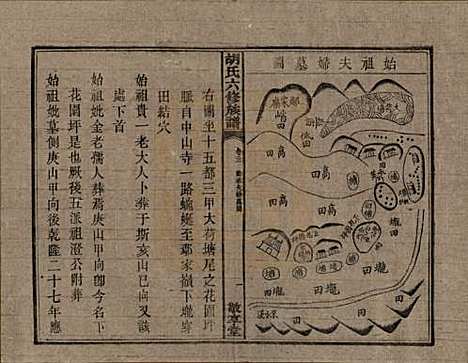 始祖夫婦墓圖
高田
低田
高田
高田
壠田
壠田
田
田
胡氏六修族譜
卷三
一
敬享堂
右圖坐十五都三甲大荷塘尾之花園坪
脈自中山寺一路蜿蜒至鄒家嶺下壠穿
田結穴
始祖貴一老大人卜葬于斯亥山巳向又該
處下首
始祖妣金老孺人葬焉庚山甲向即今之
花園坪是也厥後五派祖澄公附葬
始祖妣墓側庚山甲向後乾隆二十七年應